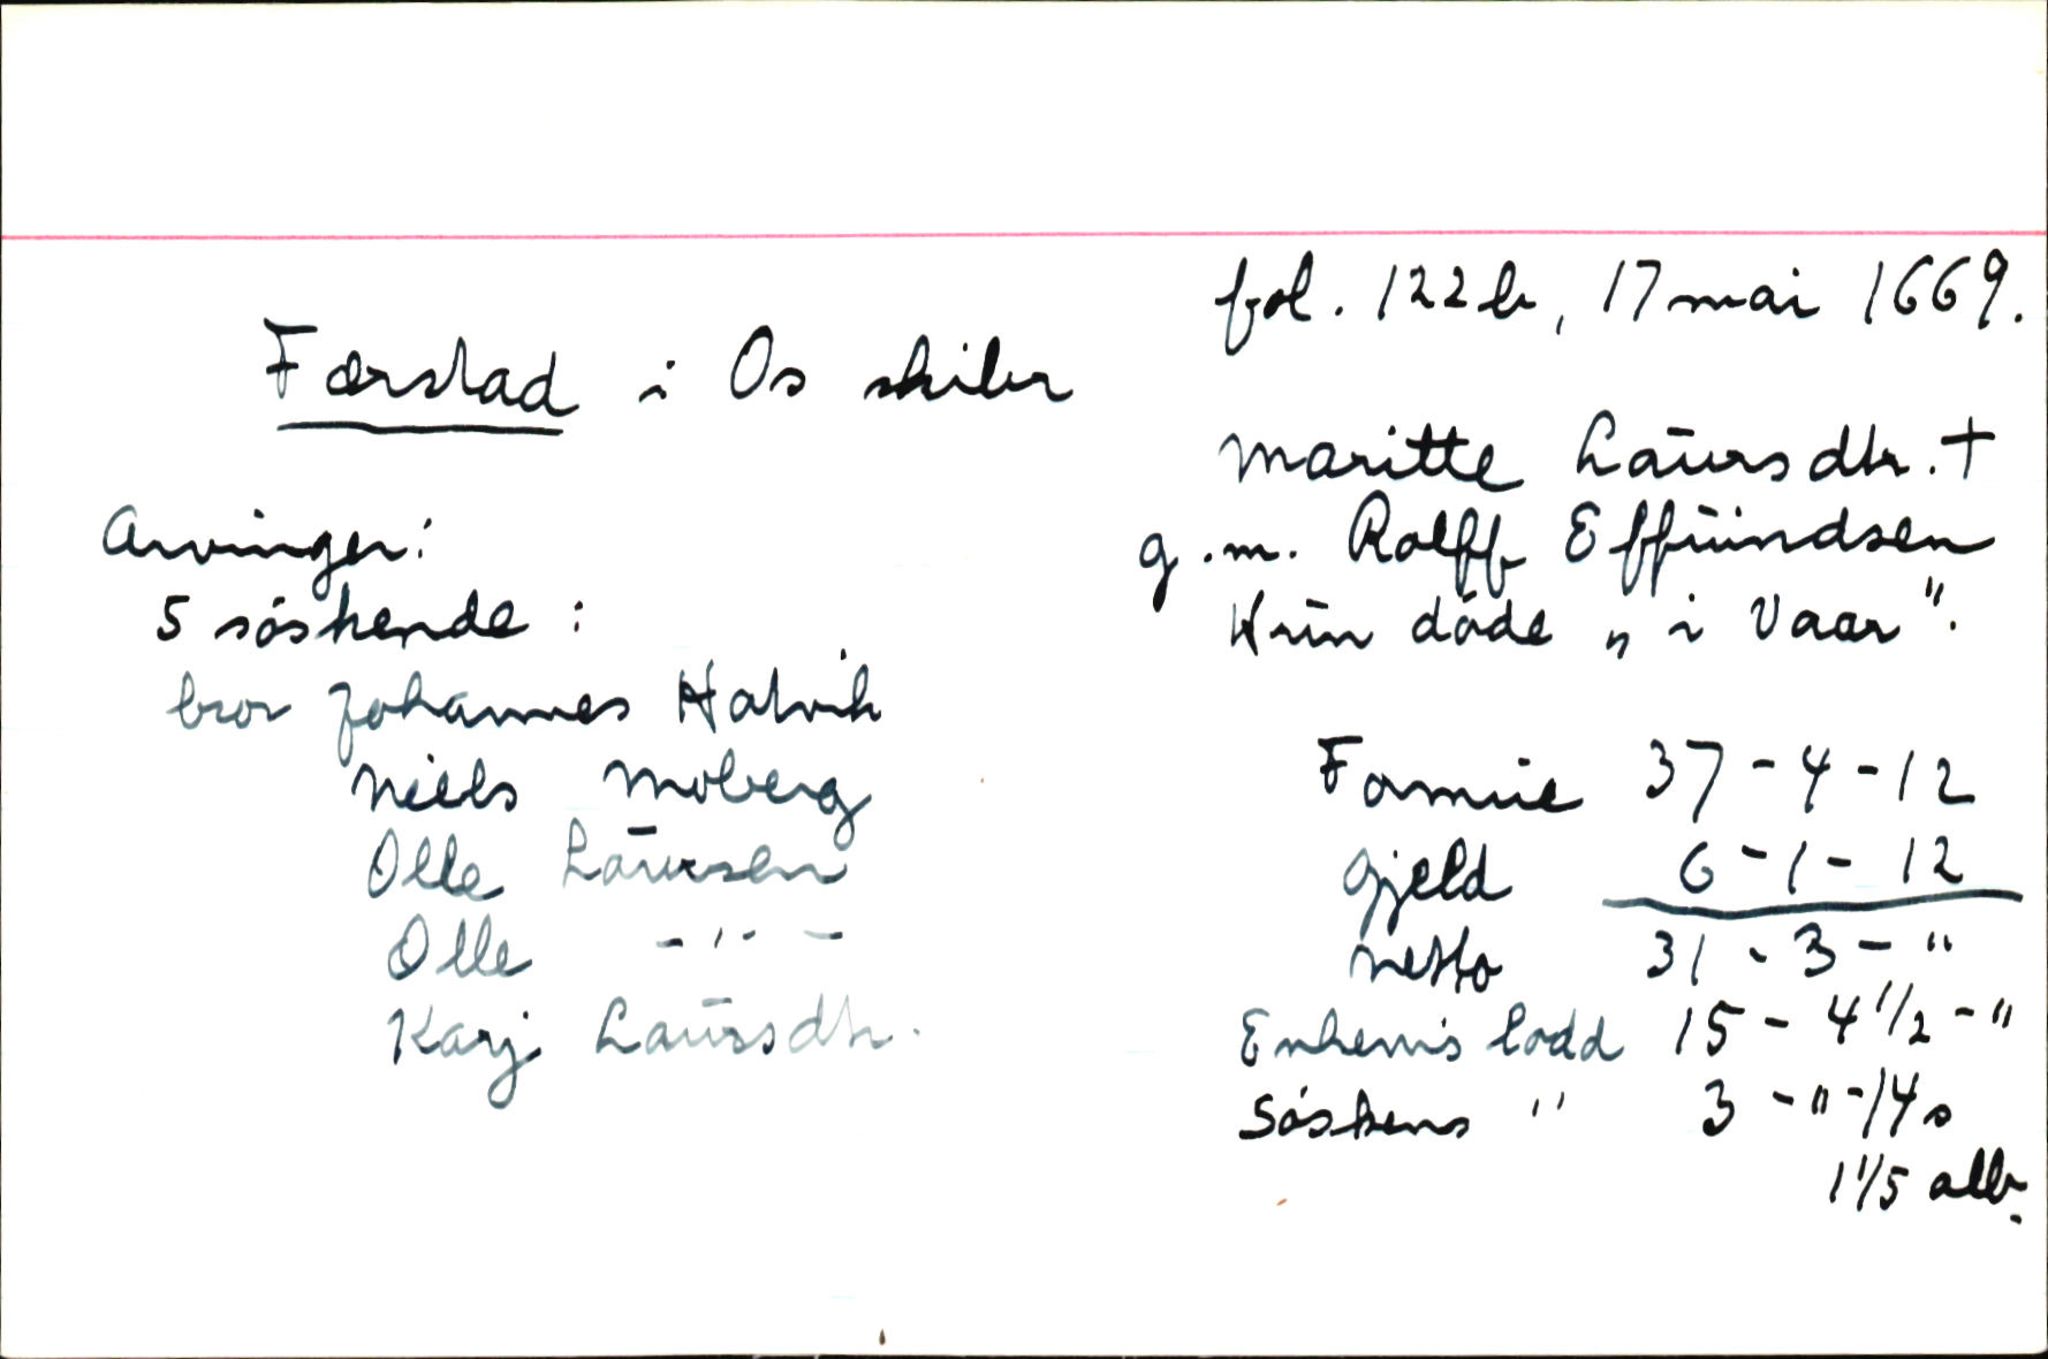 fol. 122b, 17 mai 1669.
Færstad i Os skiber
Maritte Laursdtr. †
g.m. Rolff Effuindsen
Hun døde „i Vaar".
Arvinger:
5 søskende:
bror Johannes Hatvik
Niels Moberg
Olle Laursen
Olle -"-
Karj Laursdtr.
Formue 37-4-12
Gjeld 6-1-12
Netto 31-3-"
Enkem's lodd 15-4 1/2-"
Søskens " 3-"-14s
1 1/5 alb.